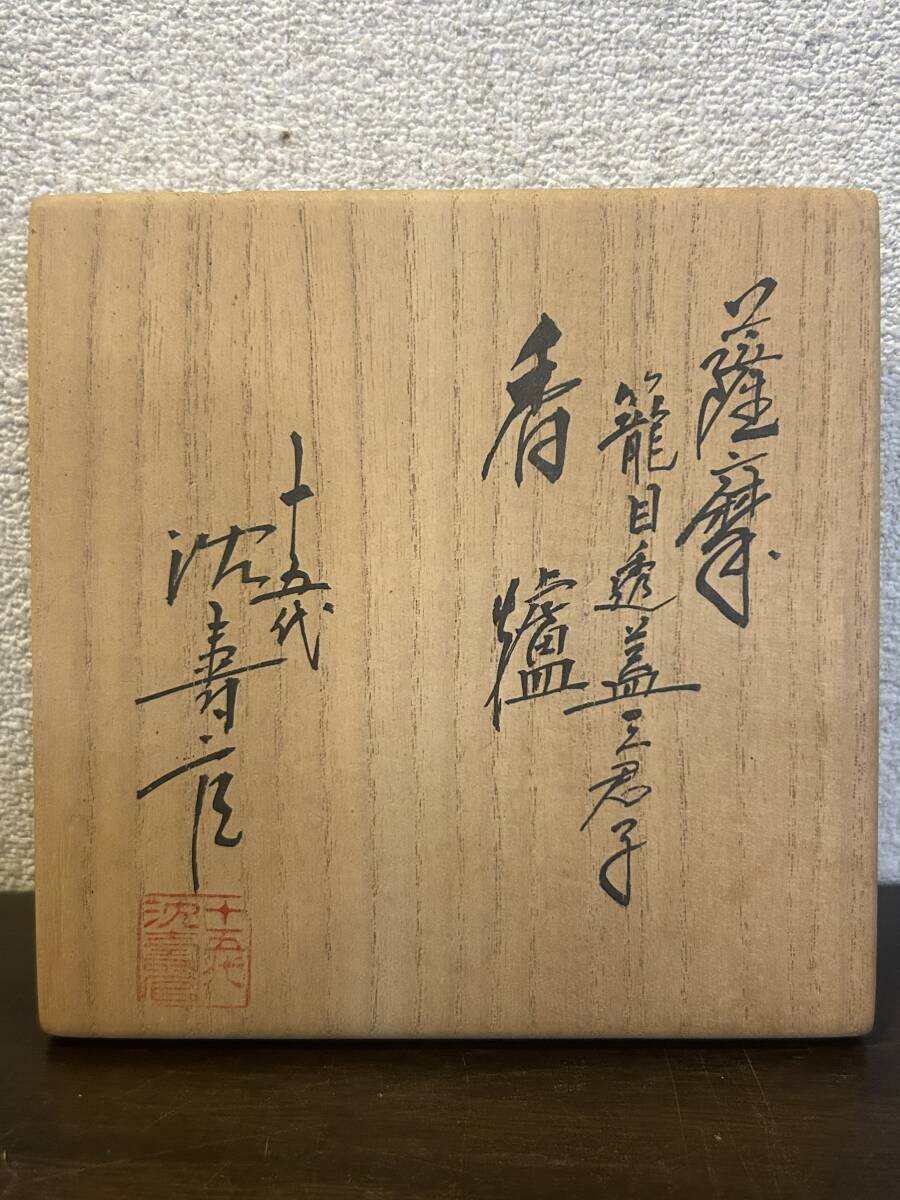 薩摩
籠目透蓋三君子
香爐
十五代
沈壽官
十五代
沈壽官